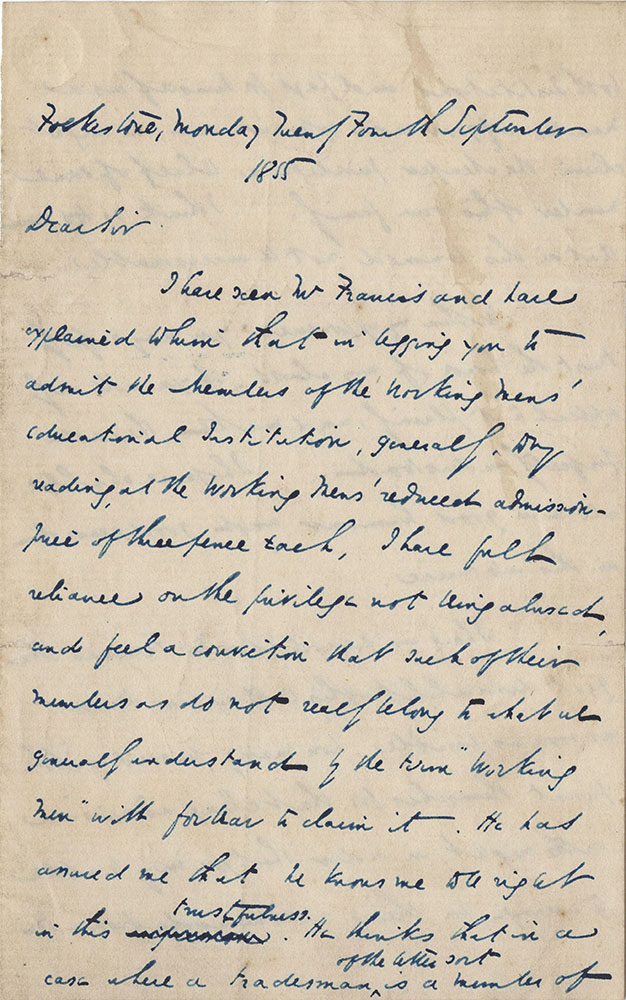 Folkestone, Monday Twenty Fourth September
1855
Dear Sir
I have seen Mr Francis and have
explained to him that in begging you to
admit the Members of the Working Mens'
Educational Institution, generally, to my
reading, at the Working Mens' reduced admission-
price of threepence each, I have full
reliance on the privilege not being abused,
and feel a conviction that such of their
members as do not really belong to what we
generally understand by the term "Working
Men" will forbear to claim it. He has
assured me that he knows me to be right
in this trustfulness. He thinks that in a
case where a tradesman of the better sort is a member of